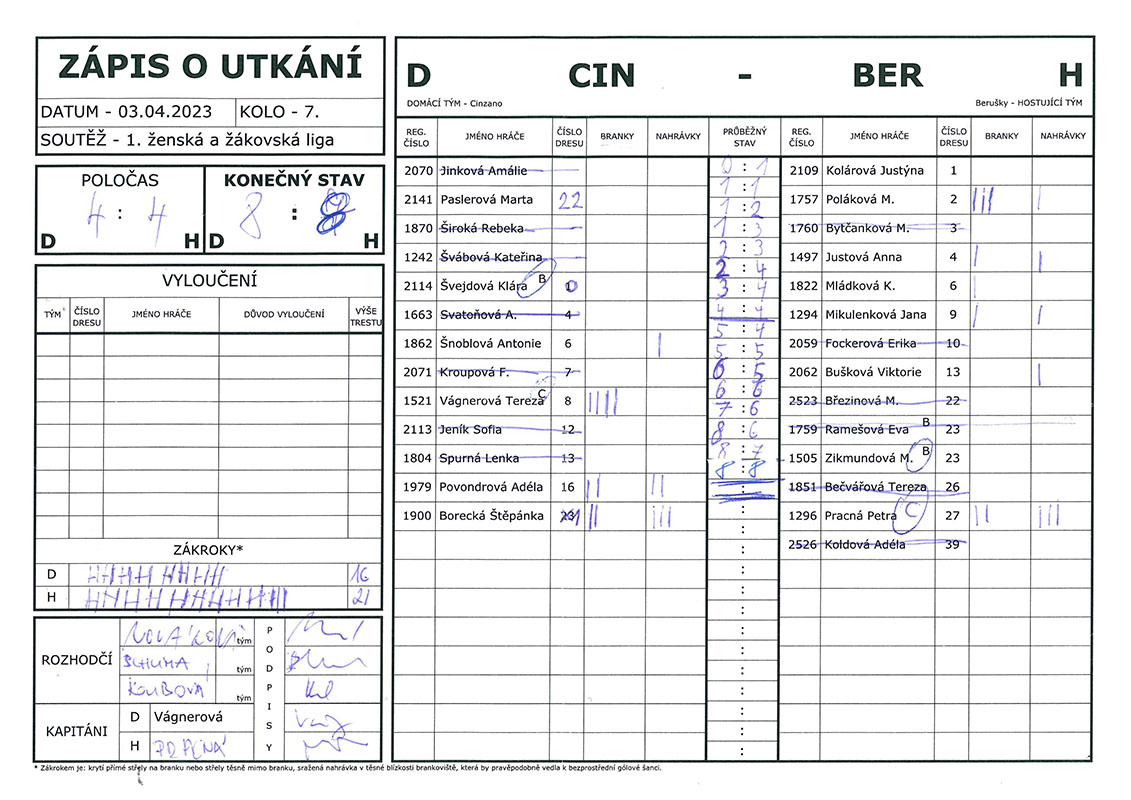 ZÁPIS O UTKÁNÍ
DATUM - 03.04.2023 KOLO - 7.
SOUTĚŽ - 1. ženská a žákovská liga
POLOČAS KONEČNÝ STAV
4 : 4 8 : 8
D H D H
VYLOUČENÍ
TÝM ČÍSLO DRESU JMÉNO HRÁČE DŮVOD VYLOUČENÍ VÝŠE TRESTU
ZÁKROKY*
D 16
H 21
ROZHODČÍ
tým
tým
KOUBOVÁ tým
PODPISY
KAPITÁNI
D Vágnerová
H
D CIN - BER H
DOMÁCÍ TÝM - Cinzano Berušky - HOSTUJÍCÍ TÝM
REG. ČÍSLO JMÉNO HRÁČE ČÍSLO DRESU BRANKY NAHRÁVKY PRŮBĚŽNÝ STAV REG. ČÍSLO JMÉNO HRÁČE ČÍSLO DRESU BRANKY NAHRÁVKY
2070 Jinková Amálie
2141 Paslerová Marta 22
1870 Široká Rebeka
1242 Švábová Kateřina
2114 Švejdová Klára B
1663 Svatoňová A. 4
1862 Šnoblová Antonie 6 |
2071 Kroupová F. 7
1521 Vágnerová Tereza C 8 ||||
2113 Jeník Sofia 12
1804 Spurná Lenka 13
1979 Povondrová Adéla 16 || ||
1900 Borecká Štěpánka || |||
0 : 1
1 : 1
1 : 2
1 : 3
2 : 3
2 : 4
3 : 4
4 : 4
5 : 4
5 : 5
6 : 5
6 : 6
7 : 6
8 : 6
8 : 7
8 : 8
2109 Kolárová Justýna 1
1757 Poláková M. 2 ||| |
1760 Bytčanková M. 3
1497 Justová Anna 4 | |
1822 Mládková K. 6 |
1294 Mikulenková Jana 9 | |
2059 Fockerová Erika 10
2062 Bušková Viktorie 13 |
2523 Březinová M. 22
1759 Ramešová Eva B 23
1505 Zikmundová M. B 23
1851 Bečvářová Tereza 26
1296 Pracná Petra C 27 || |||
2526 Koldová Adéla 39
* Zákrokem je: krytí přímé střely na branku nebo střely těsně mimo branku, sražená nahrávka v těsné blízkosti brankoviště, která by pravěpodobně vedla k bezprostřední gólové šanci.